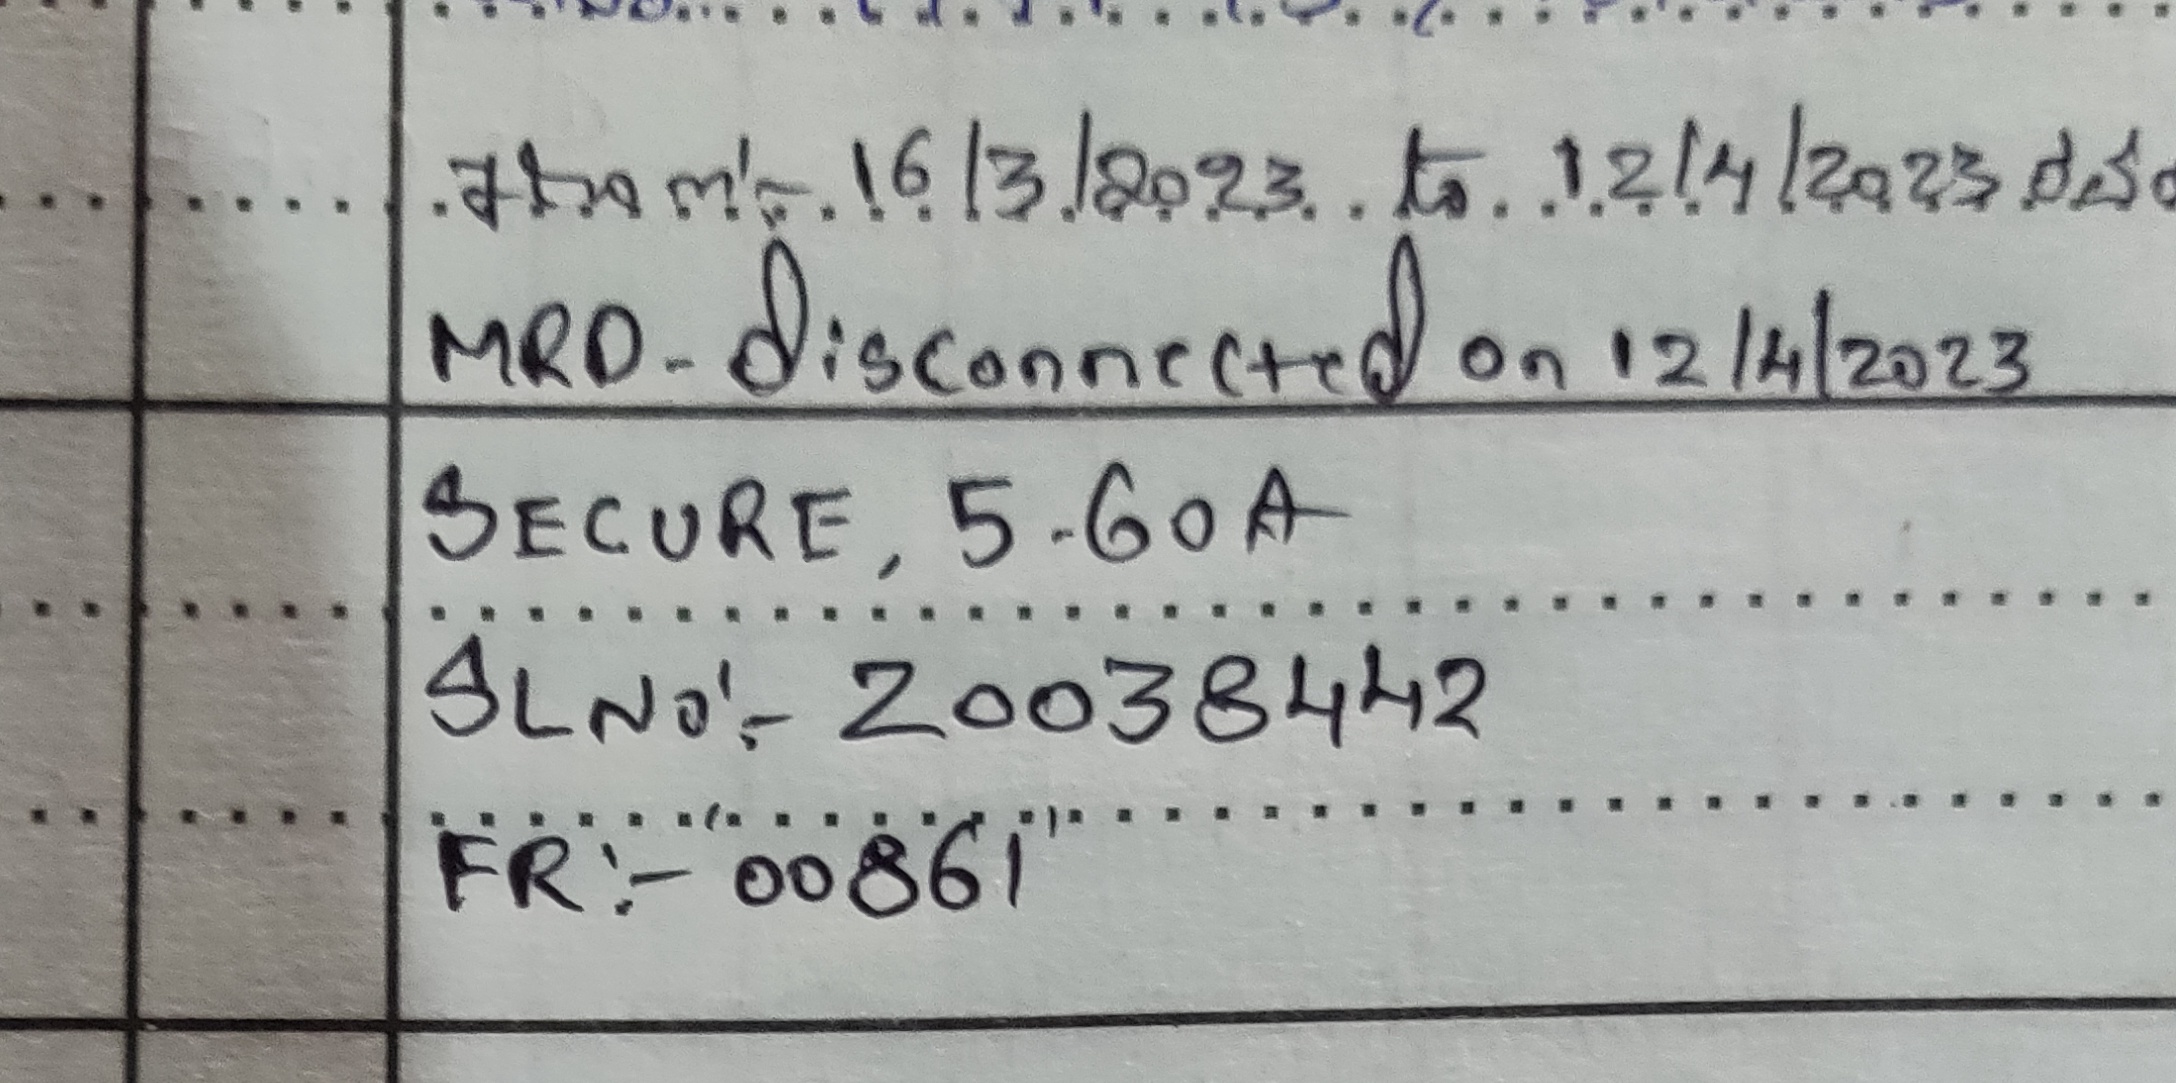 from:- 16/3/2023 to 12/4/2023
MRD- disconnected on 12/4/2023
SECURE, 5-60A
SLNO:- 20038442
FR:- 00861